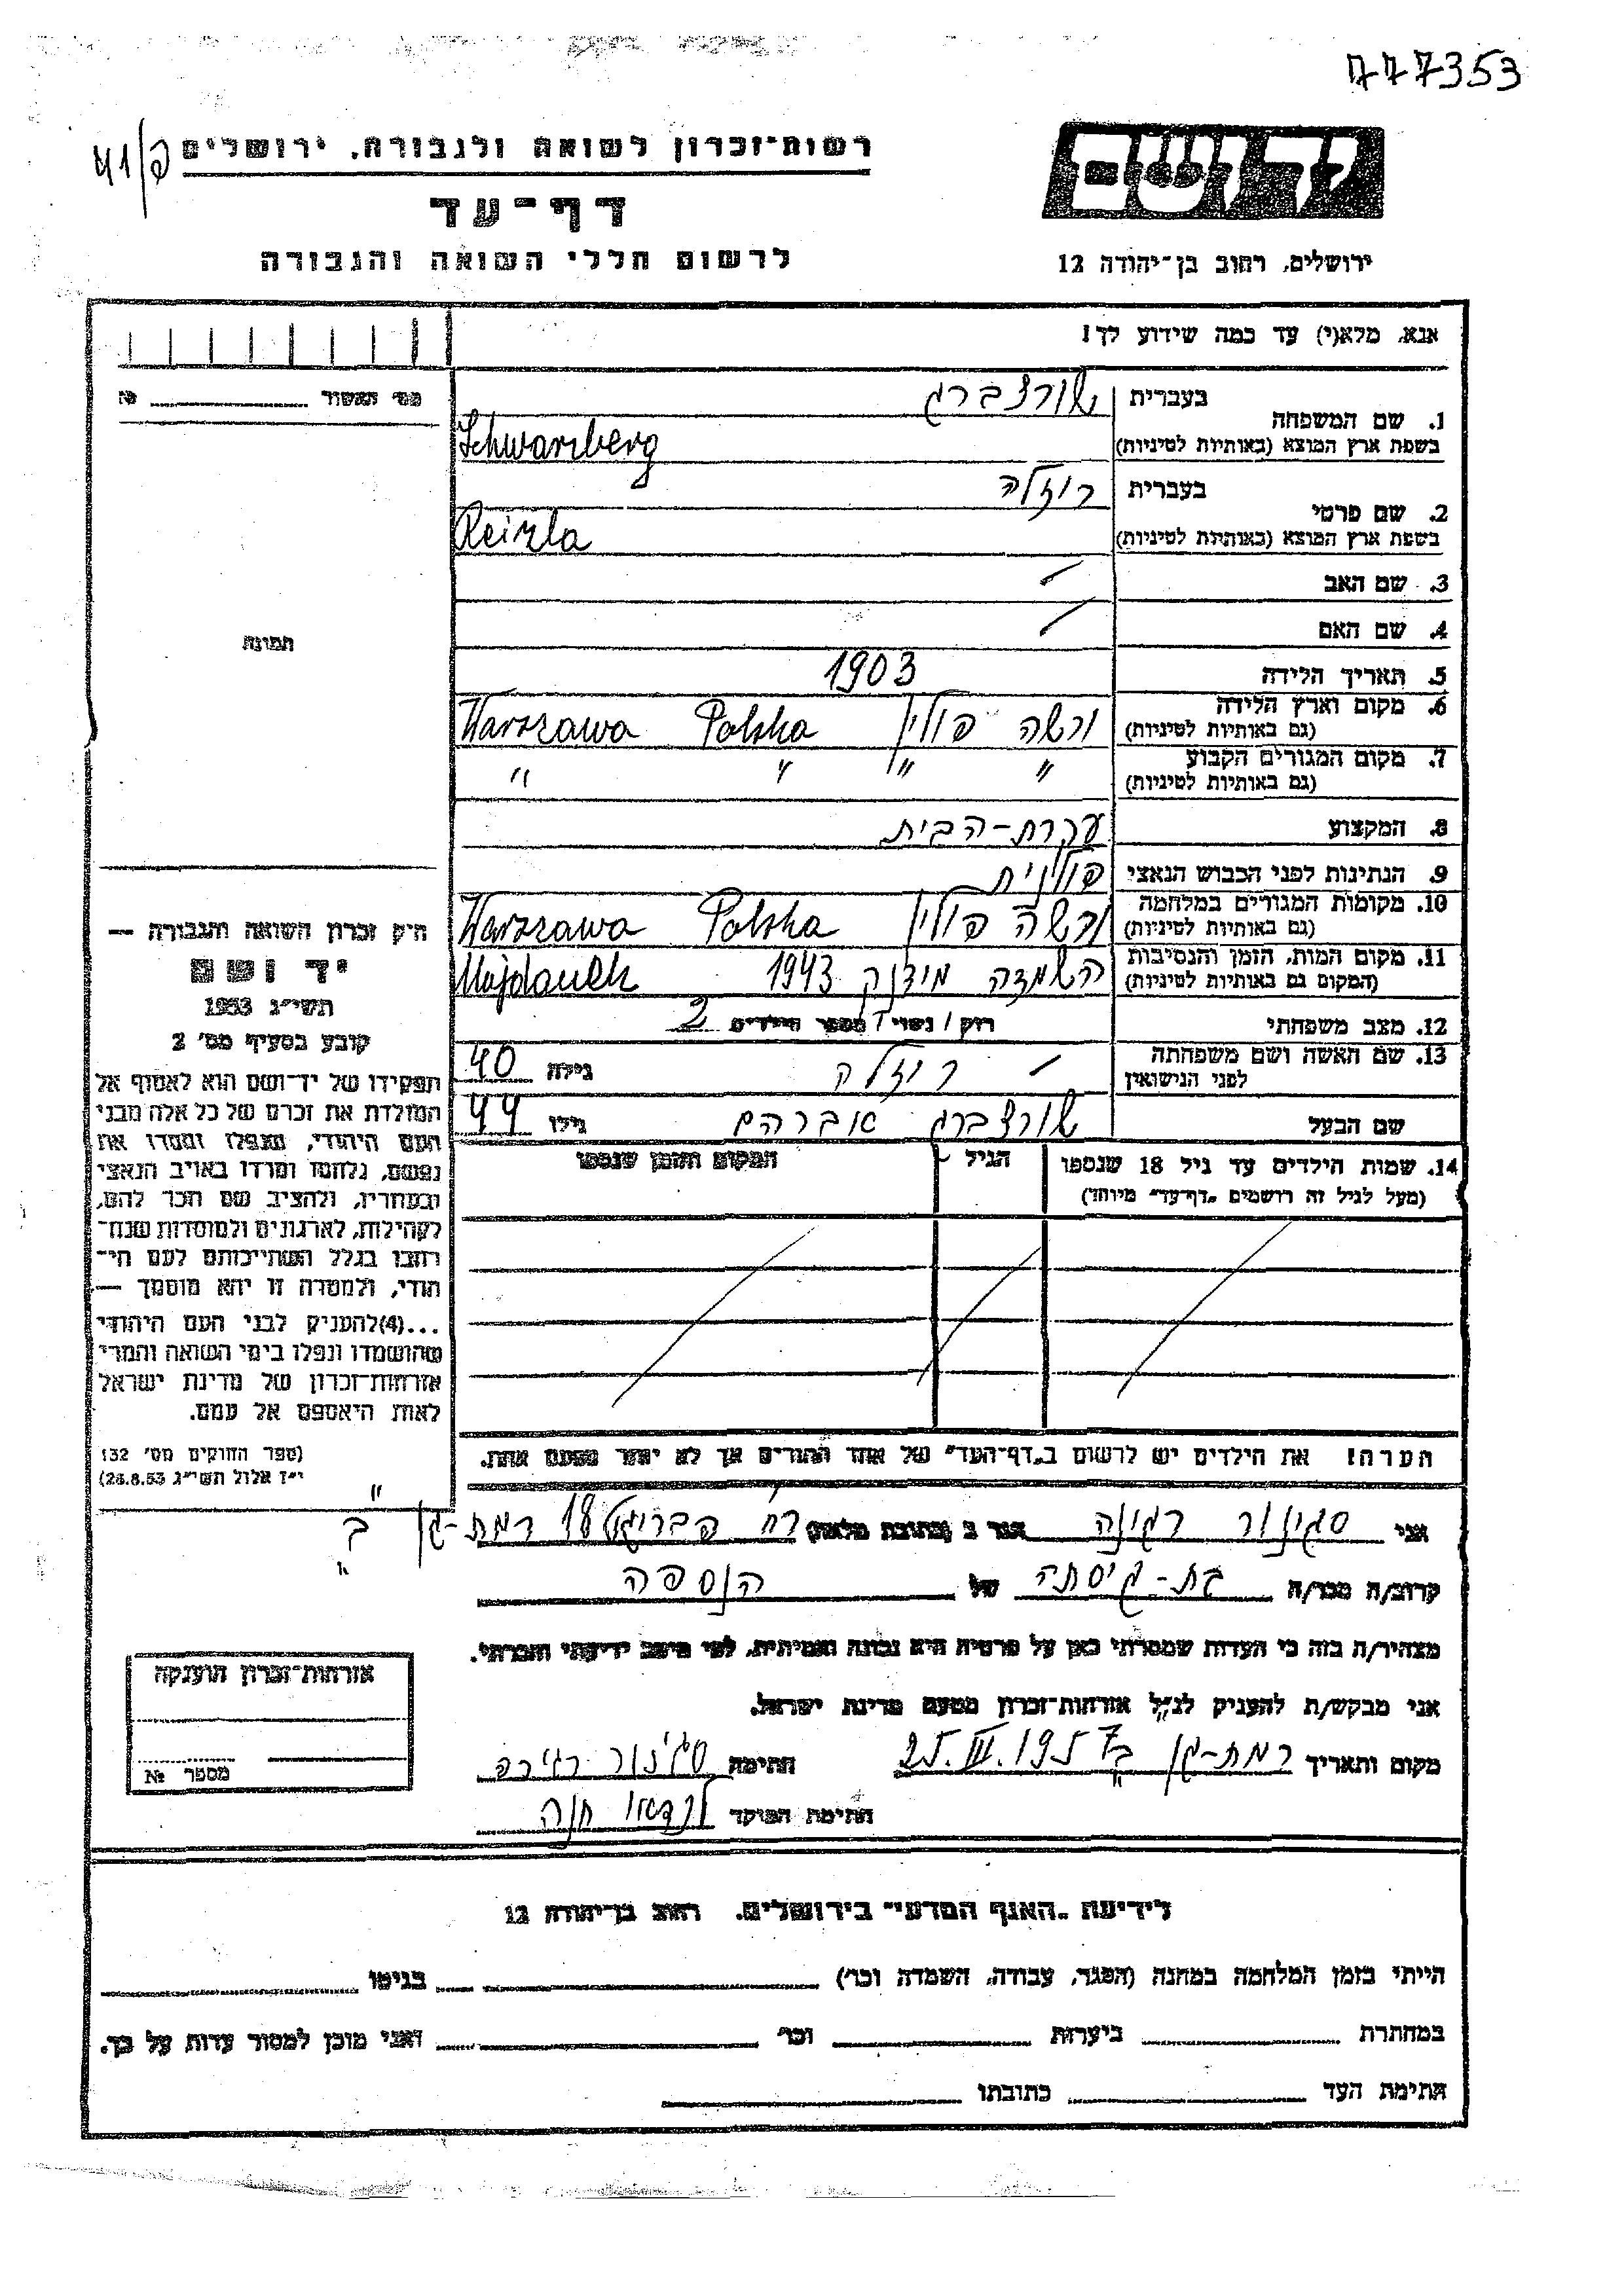 777353
רשות-זכרון לשואה ולגבורה, ירושלים
דף-עד
לרשום חללי השואה והגבורה
יד ושם
ירושלים, רחוב בן-יהודה 12
אנא, מלא(י) עד כמה שידוע לך!
מס' האשור № ________
1. שם המשפחה
בעברית שורצברג
בשפת ארץ המוצא (באותיות לטיניות) Schwarzberg
2. שם פרטי
בעברית רוזלה
בשפת ארץ המוצא (באותיות לטיניות) Reizla
3. שם האב
4. שם האם
5. תאריך הלידה 1903
6. מקום וארץ הלידה (גם באותיות לטיניות) ורשה פולין Warszawa Polska
7. מקום המגורים הקבוע (גם באותיות לטיניות) " " " "
8. המקצוע עקרת-הבית
9. הנתינות לפני הכבוש הנאצי פולנית
10. מקומות המגורים במלחמה (גם באותיות לטיניות) ורשה פולין Warszawa Polska
11. מקום המות, הזמן והנסיבות (המקום גם באותיות לטיניות) השמדה מידנק 1943 Majdanek
12. מצב משפחתי רוק / נשוי / מספר הילדים 2
13. שם האשה ושם משפחתה לפני הנישואין רוזלה גילה 40
שם הבעל שורצברג אברהם גילו 44
14. שמות הילדים עד גיל 18 שנספו (מעל לגיל זה רושמים "דף-עד" מיוחד)
הגיל
המקום והזמן שנספו
הערה! את הילדים יש לרשום ב"דף-העד" של אחד ההורים אך לא יותר מפעם אחת.
תמונה
חוק זכרון השואה והגבורה —
יד ושם
תשי"ג 1953
קובע בסעיף מס' 2
תפקידו של יד-ושם הוא לאסוף אל
המולדת את זכרם של כל אלה מבני
העם היהודי, שנפלו ומסרו את
נפשם, נלחמו ומרדו באויב הנאצי
ובעוזריו, ולהציב שם וזכר להם,
לקהילות, לארגונים ולמוסדות שנח-
רבו בגלל השתייכותם לעם הי-
הודי, ולמטרה זו יהא מוסמך —
...(4) להעניק לבני העם היהודי
שהושמדו ונפלו בימי השואה והמרי
אזרחות-זכרון של מדינת ישראל
לאות היאספם אל עמם.
(ספר החוקים מס' 132
י"ז אלול תשי"ג 28.8.53)
אני סגינור רגינה הגר ב (כתובת מלאה) רח' הבריגטה 18 רמת-גן ב'
קרוב/ה מכר/ה בת-גיסתה של הנספה
מצהיר/ה בזה כי העדות שמסרתי כאן על פרטיה היא נכונה ואמיתית, לפי מיטב ידיעתי והכרתי.
אני מבקש/ת להעניק לנ"ל אזרחות-זכרון מטעם מדינת ישראל.
מקום ותאריך רמת-גן ב' 25.III.1957 חתימה
חתימת הפוקד לנדאו חנה
אזרחות-זכרון הוענקה
מספר №
לידיעת "האגף המדעי" בירושלים. רחוב בן-יהודה 12
הייתי בזמן המלחמה במחנה (הסגר, עבודה, השמדה וכו') ________ בגיטו ________
במחתרת ________ ביערות ________ וכו' ________ ואני מוכן למסור עדות על כך.
חתימת העד ________ כתובתו ________